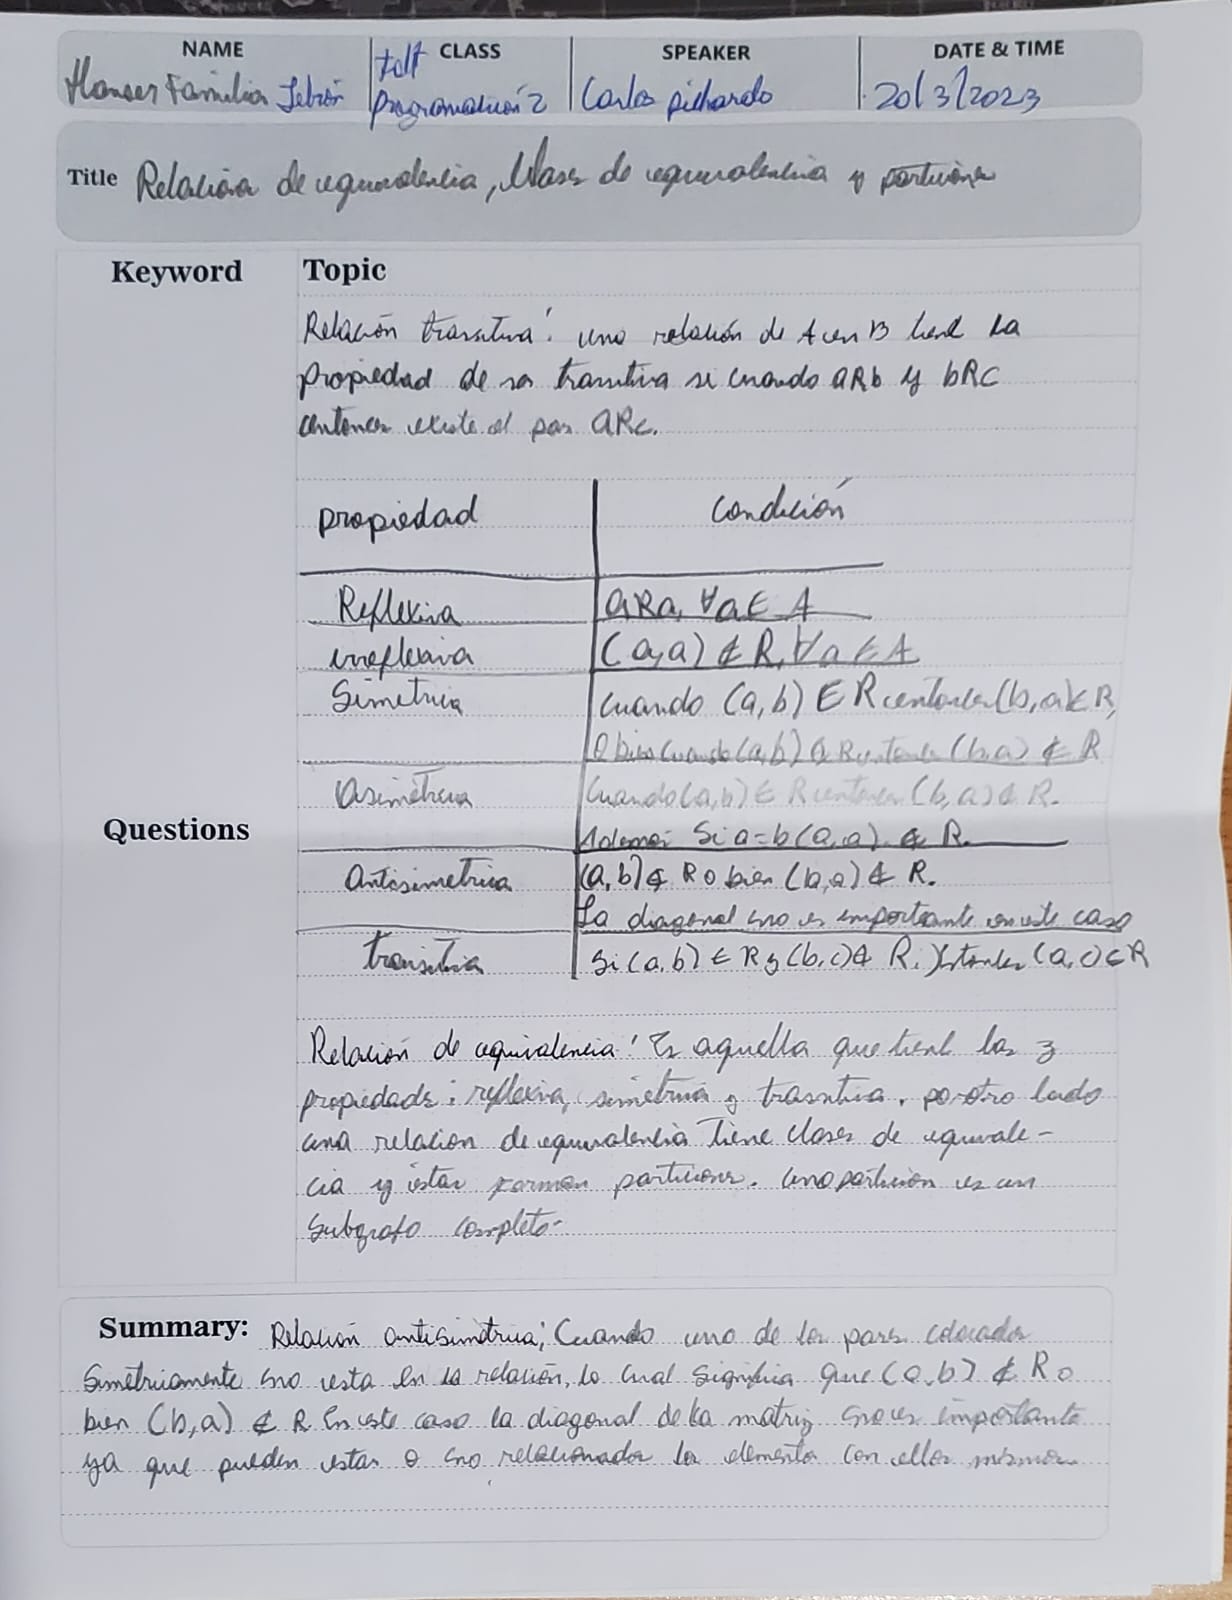 NAME CLASS SPEAKER DATE & TIME
Hanser Familia Lebrón Programación 2 Carlos pichardo 20/3/2023
Title Relación de equivalencia, Clases de equivalencia y particiones
Keyword Topic
Relación transitiva: una relación de A en B tiene la
propiedad de ser transitiva si cuando aRb y bRC
entonces existe el par aRc.
propiedad condición
Reflexiva aRa, ∀a ∈ A
irreflexiva (a,a) ∉ R, ∀a ∈ A
Simetrica cuando (a,b) ∈ R entonces (b,a) ∈ R,
O bien cuando (a,b) ∉ R entonces (b,a) ∉ R
Asimétrica Cuando (a,b) ∈ R entonces (b,a) ∉ R.
Questions Ademas Si a=b (a,a) ∉ R.
Antisimetrica (a,b) ∉ R o bien (b,a) ∉ R.
La diagonal no es importante en este caso
transitiva Si (a,b) ∈ R y (b,c) ∉ R, Entonces (a,c) ∈ R
Relación de equivalencia: Es aquella que tiene las 3
propiedades: reflexiva, simetrica y trasntiva, por otro lado
una relacion de equivalencia tiene clases de equivale-
cia y éstas forman particiones. una partición es un
Subgrafo completo-
Summary: Relación antisimetrica; Cuando uno de los pares colocados
Simétricamente no esta en la relación, lo cual significa que (a,b) ∉ R o
bien (b,a) ∉ R En este caso la diagonal de la matriz no es importante
ya que pueden estar o no relacionados los elementos con ellos mismos